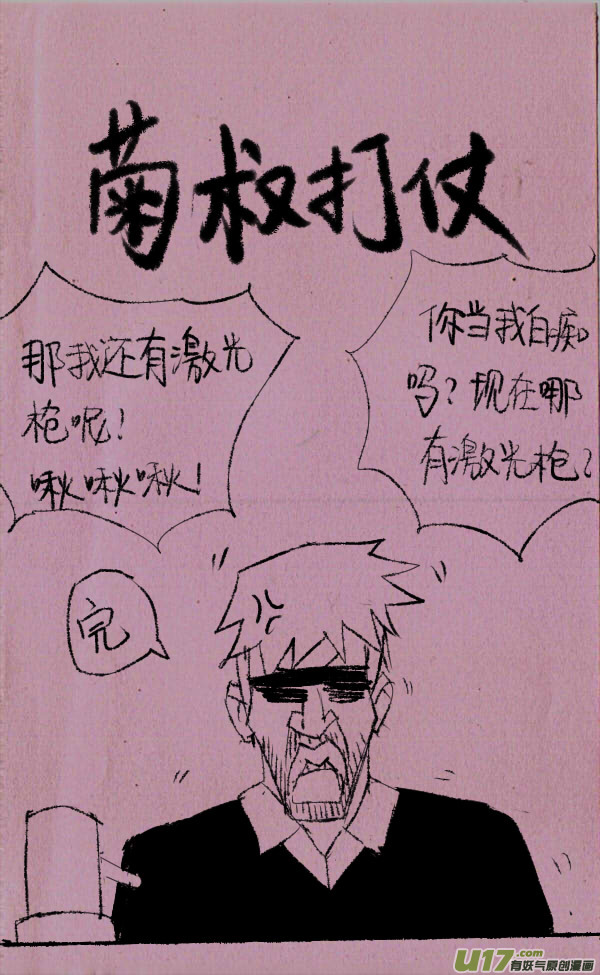 菊叔打仗
那我还有激光
枪呢！
啾啾啾！
你当我白痴
吗？现在哪
有激光枪？
完
U17.com
有妖气原创漫画